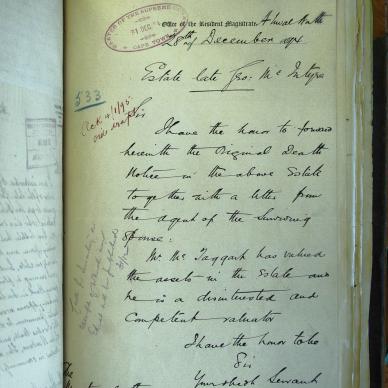 Office of the Resident Magistrate, Aliwal North
28th December 1894
MASTER OF THE SUPREME COURT
31 DEC
CAPE TOWN
533
Estate late Geo: Mc Intyre
Ack 4/1/95
Sir
I have the honor to forward
herewith the Original Death
Notice in the above Estate
together with a letter from
the agent of the Surviving
Spouse:
Mr. Mc Taggart has valued
the assets in the Estate and
he is a disinterested and
competent valuator
I have the honor to be
Sir
Your obedt Servant
The